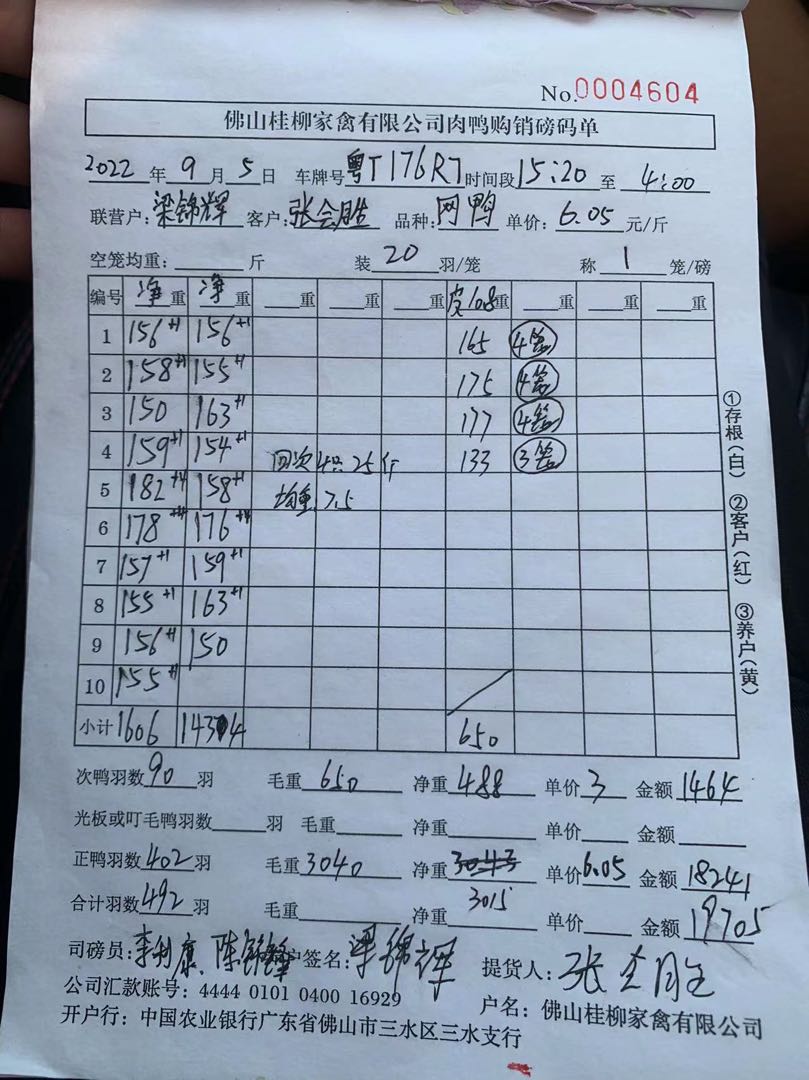 No.0004604
佛山桂柳家禽有限公司肉鸭购销磅码单
2022 年 9 月 5 日 车牌号 粤T176R7 时间段 15:20 至 4:00
联营户: 梁锦辉 客户: 张会胜 品种: 网鸭 单价: 6.05 元/斤
空笼均重: 斤 装 20 羽/笼 称 1 笼/磅
编号 净重 净重 重 重 重 皮10.8重 重 重 重
1 156+1 156+1 165 4笼
2 158+1 155+1 175 4笼
3 150 163+1 177 4笼
4 159+1 154+1 回次4只25斤 133 3笼
5 182+4 158+1 均重7.5
6 178+4 176+4
7 157+1 159+1
8 155+1 163+1
9 156+1 150
10 155+1
小计 1606 1434 650
次鸭羽数 90 羽 毛重 650 净重 488 单价 3 金额 1464
光板或叮毛鸭羽数 羽 毛重 净重 单价 金额
正鸭羽数 402 羽 毛重 3040 净重 3043 单价 6.05 金额 18241
合计羽数 492 羽 毛重 净重 3015 单价 金额 19705
司磅员: 李利康 陈 户签名: 梁锦辉 提货人: 张会胜
公司汇款账号: 4444 0101 0400 16929 户名: 佛山桂柳家禽有限公司
开户行: 中国农业银行广东省佛山市三水区三水支行
①存根(白) ②客户(红) ③养户(黄)